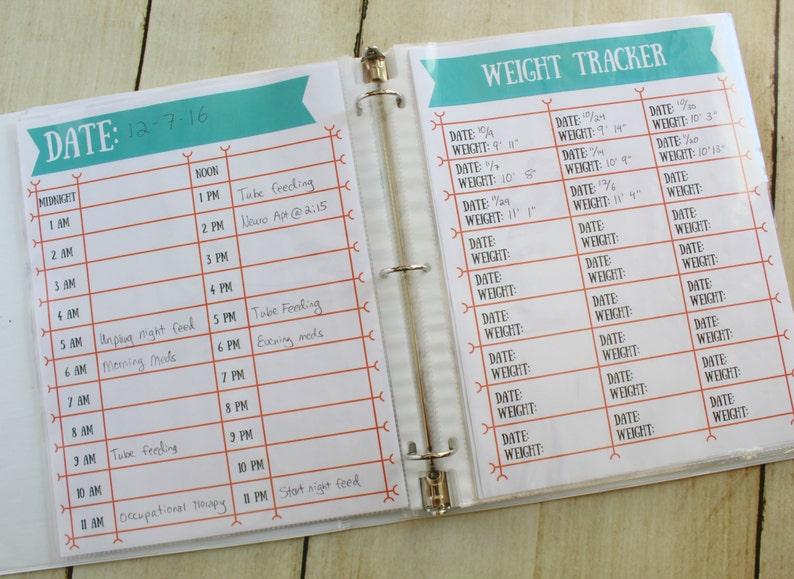 DATE: 12-7-16
MIDNIGHT
1 AM
2 AM
3 AM
4 AM
5 AM Unplug night feed
6 AM Morning Meds
7 AM
8 AM
9 AM Tube feeding
10 AM
11 AM Occupational Therapy
NOON
1 PM Tube feeding
2 PM Neuro Apt @ 2:15
3 PM
4 PM
5 PM Tube Feeding
6 PM Evening meds
7 PM
8 PM
9 PM
10 PM
11 PM Start night feed
WEIGHT TRACKER
DATE: 10/9 DATE: 10/24 DATE: 10/30
WEIGHT: 9' 11" WEIGHT: 9' 14" WEIGHT: 10' 3"
DATE: 11/7 DATE: 11/14 DATE: 11/20
WEIGHT: 10' 8" WEIGHT: 10' 9" WEIGHT: 10' 13"
DATE: 11/29 DATE: 12/6 DATE:
WEIGHT: 11' 1" WEIGHT: 11' 4" WEIGHT:
DATE: DATE: DATE:
WEIGHT: WEIGHT: WEIGHT:
DATE: DATE: DATE:
WEIGHT: WEIGHT: WEIGHT:
DATE: DATE: DATE:
WEIGHT: WEIGHT: WEIGHT:
DATE: DATE: DATE:
WEIGHT: WEIGHT: WEIGHT:
DATE: DATE: DATE:
WEIGHT: WEIGHT: WEIGHT:
DATE: DATE: DATE:
WEIGHT: WEIGHT: WEIGHT: